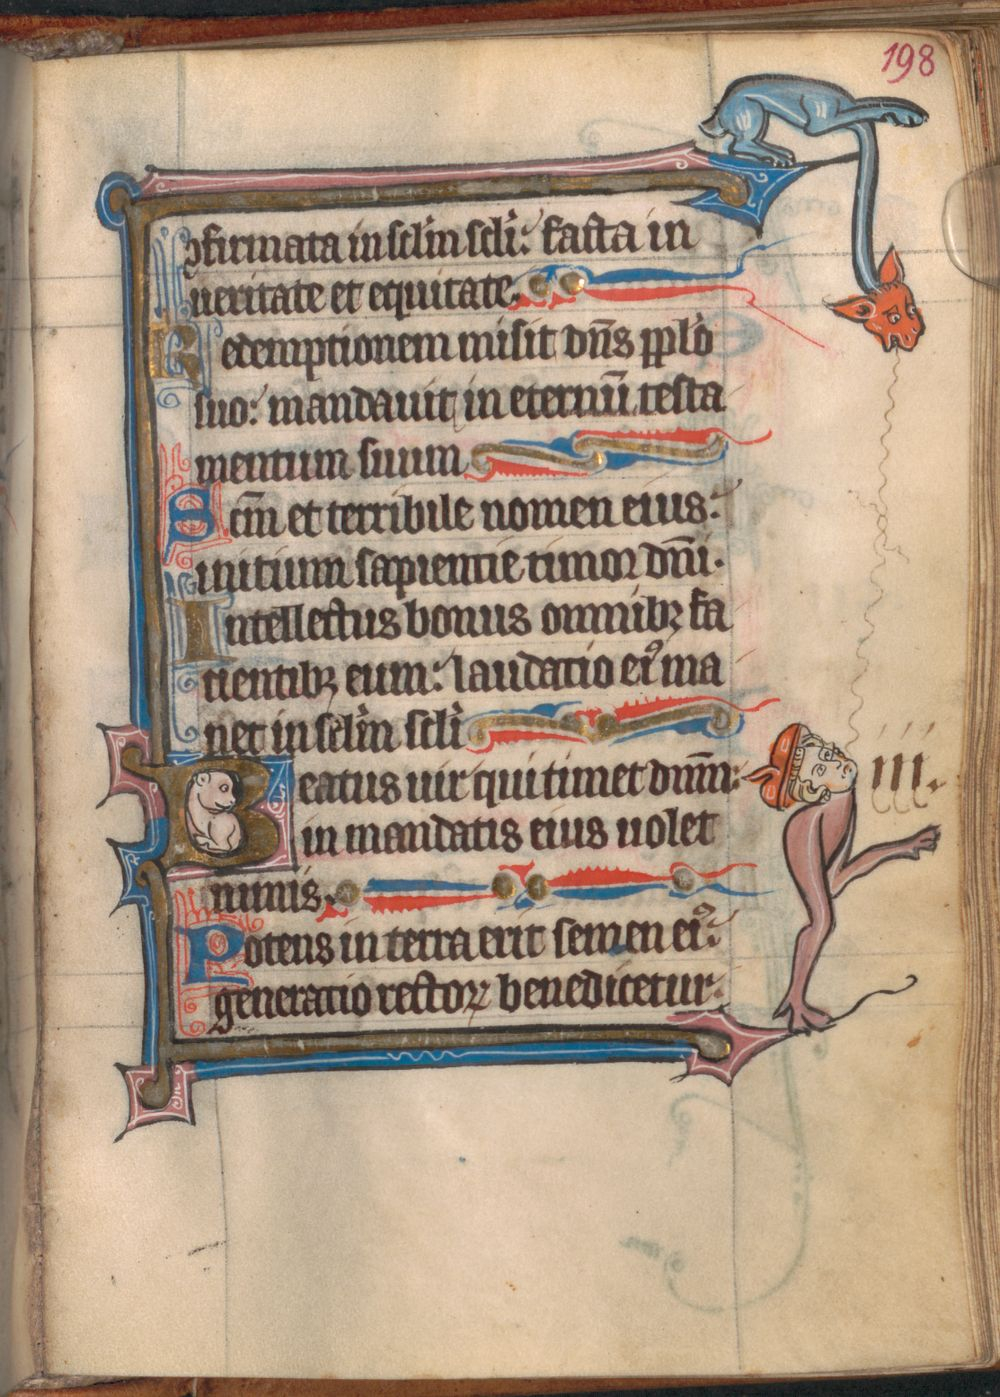 198
ꝯfirmata in sclm̄ scli̅: facta in
ueritate et equitate.
Redemptionem misit dn̄s pplo̅
suo: mandauit in eternū testa
mentum suum
Scm̄ et terribile nomen eius:
initium sapientie timor dn̄i.
Intellectus bonus omnibꝫ fa
cientibꝫ eum: laudatio eiꝰ ma
net in sclm̄ scli̅
Beatus uir qui timet dnm̄:
in mandatis eius uolet
nimis.
Potens in terra erit semen eiꝰ:
generatio rectoꝝ benedicetur.
III.